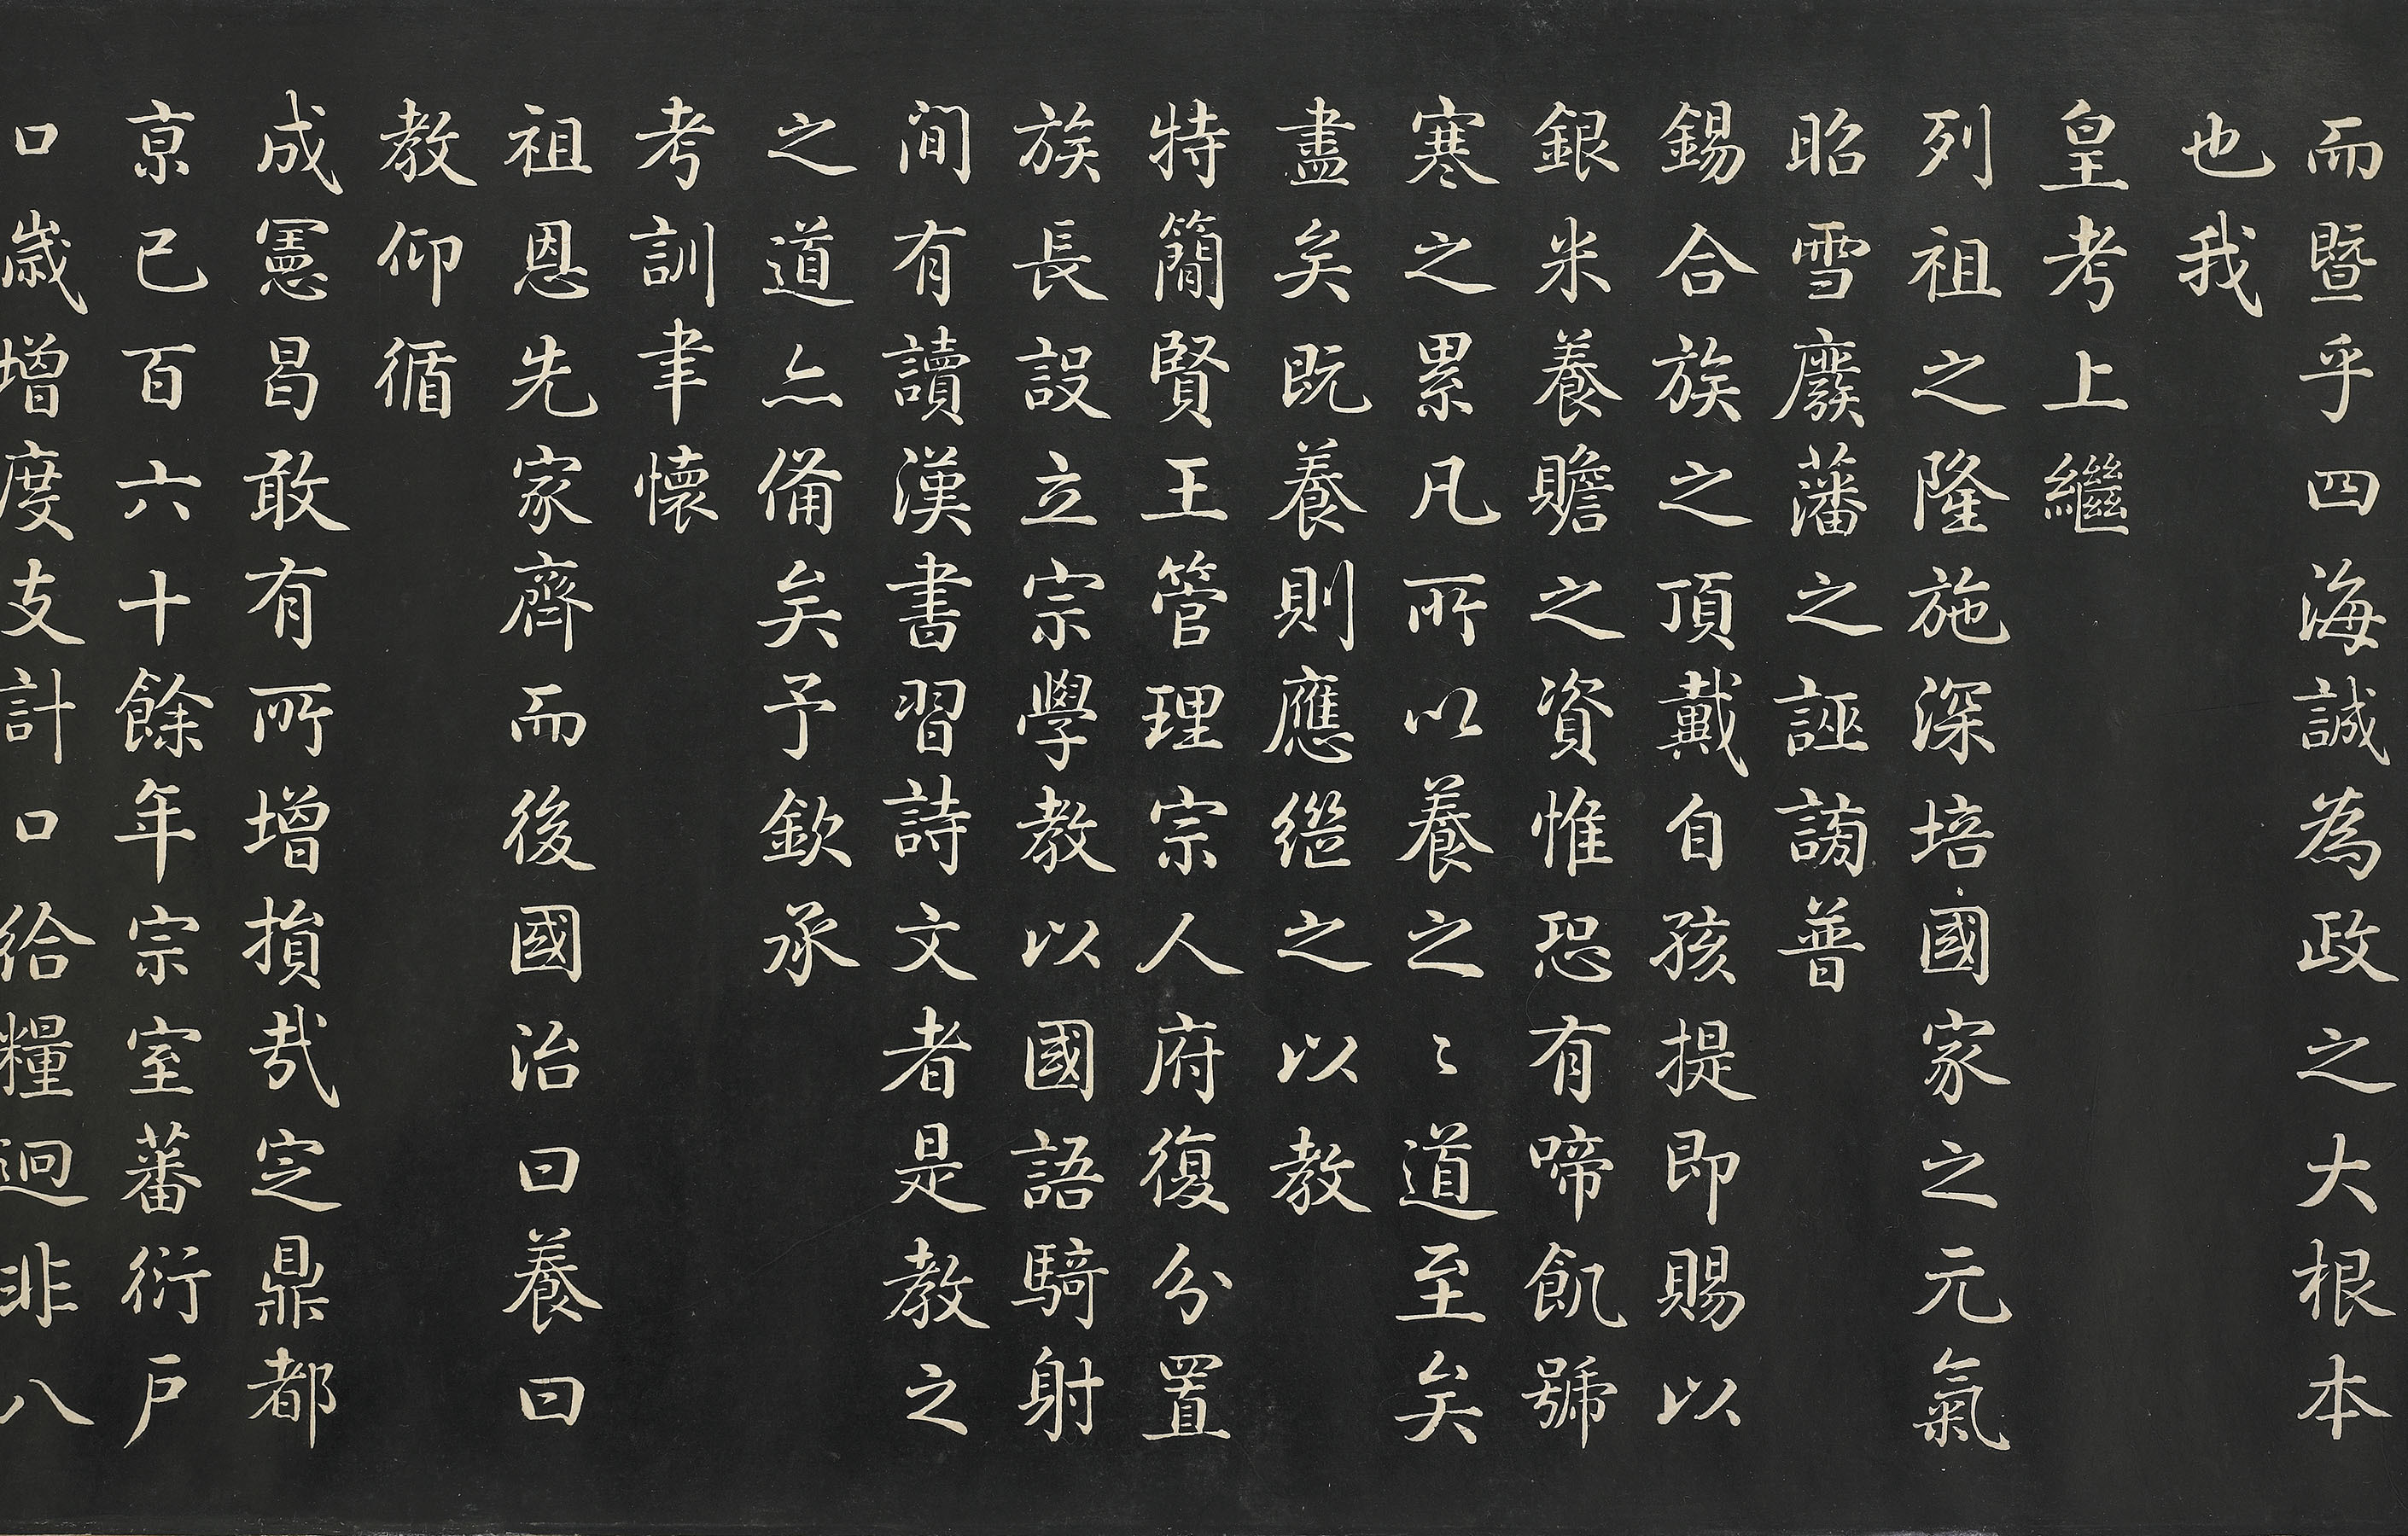 而暨乎四海誠為政之大根本
也我
皇考上繼
列祖之隆施深培國家之元氣
昭雪廢藩之誣謗普
錫合族之頂戴自孩提即賜以
銀米養贍之資惟恐有啼飢號
寒之累凡所以養之〻道至矣
盡矣既養則應繼之以教
特簡賢王管理宗人府復分置
族長設立宗學教以國語騎射
間有讀漢書習詩文者是教之
之道亦備矣予欽承
考訓聿懷
祖恩先家齊而後國治曰養曰
教仰循
成憲曷敢有所增損哉定鼎都
京已百六十餘年宗室蕃衍戶
口歲增度支計口給糧迥非八